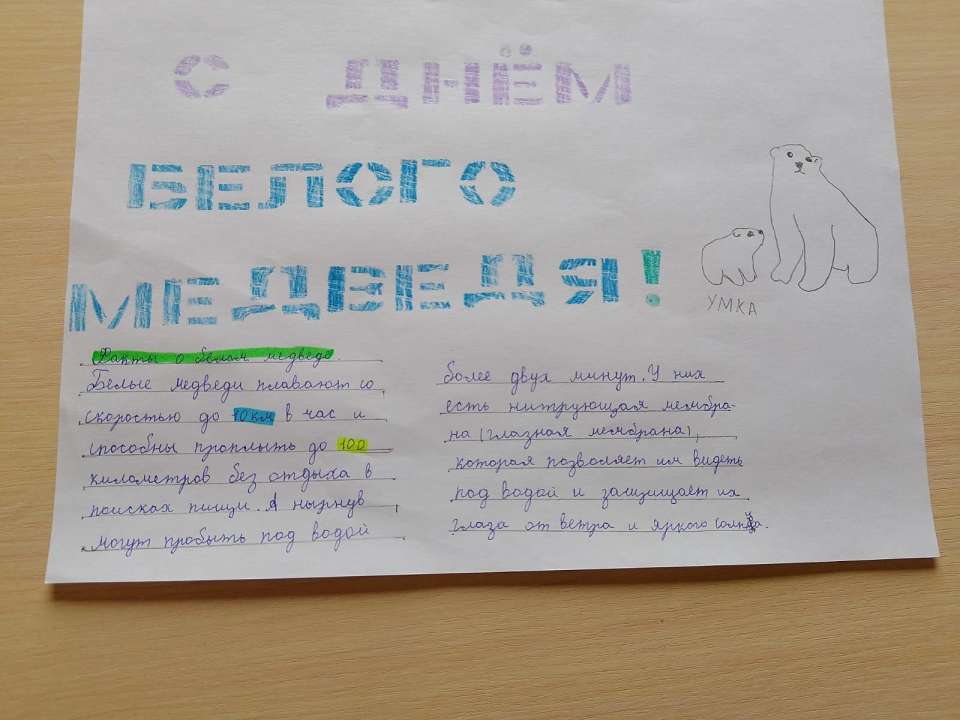 С ДНЁМ
БЕЛОГО
МЕДВЕДЯ!
УМКА
Факты о белом медведе.
Белые медведи плавают со
скоростью до 10 км в час и
способны проплыть до 100
километров без отдыха в
поисках пищи. А нырнув
могут пробыть под водой
более двух минут. У них
есть нитрующая мембра-
на (глазная мембрана),
которая позволяет им видеть
под водой и защищает их
глаза от ветра и яркого солнца.